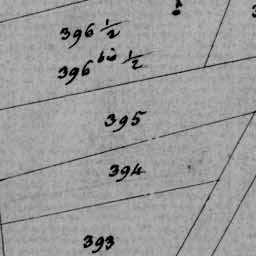 396 1/2
396 bis 1/2
395
394
393